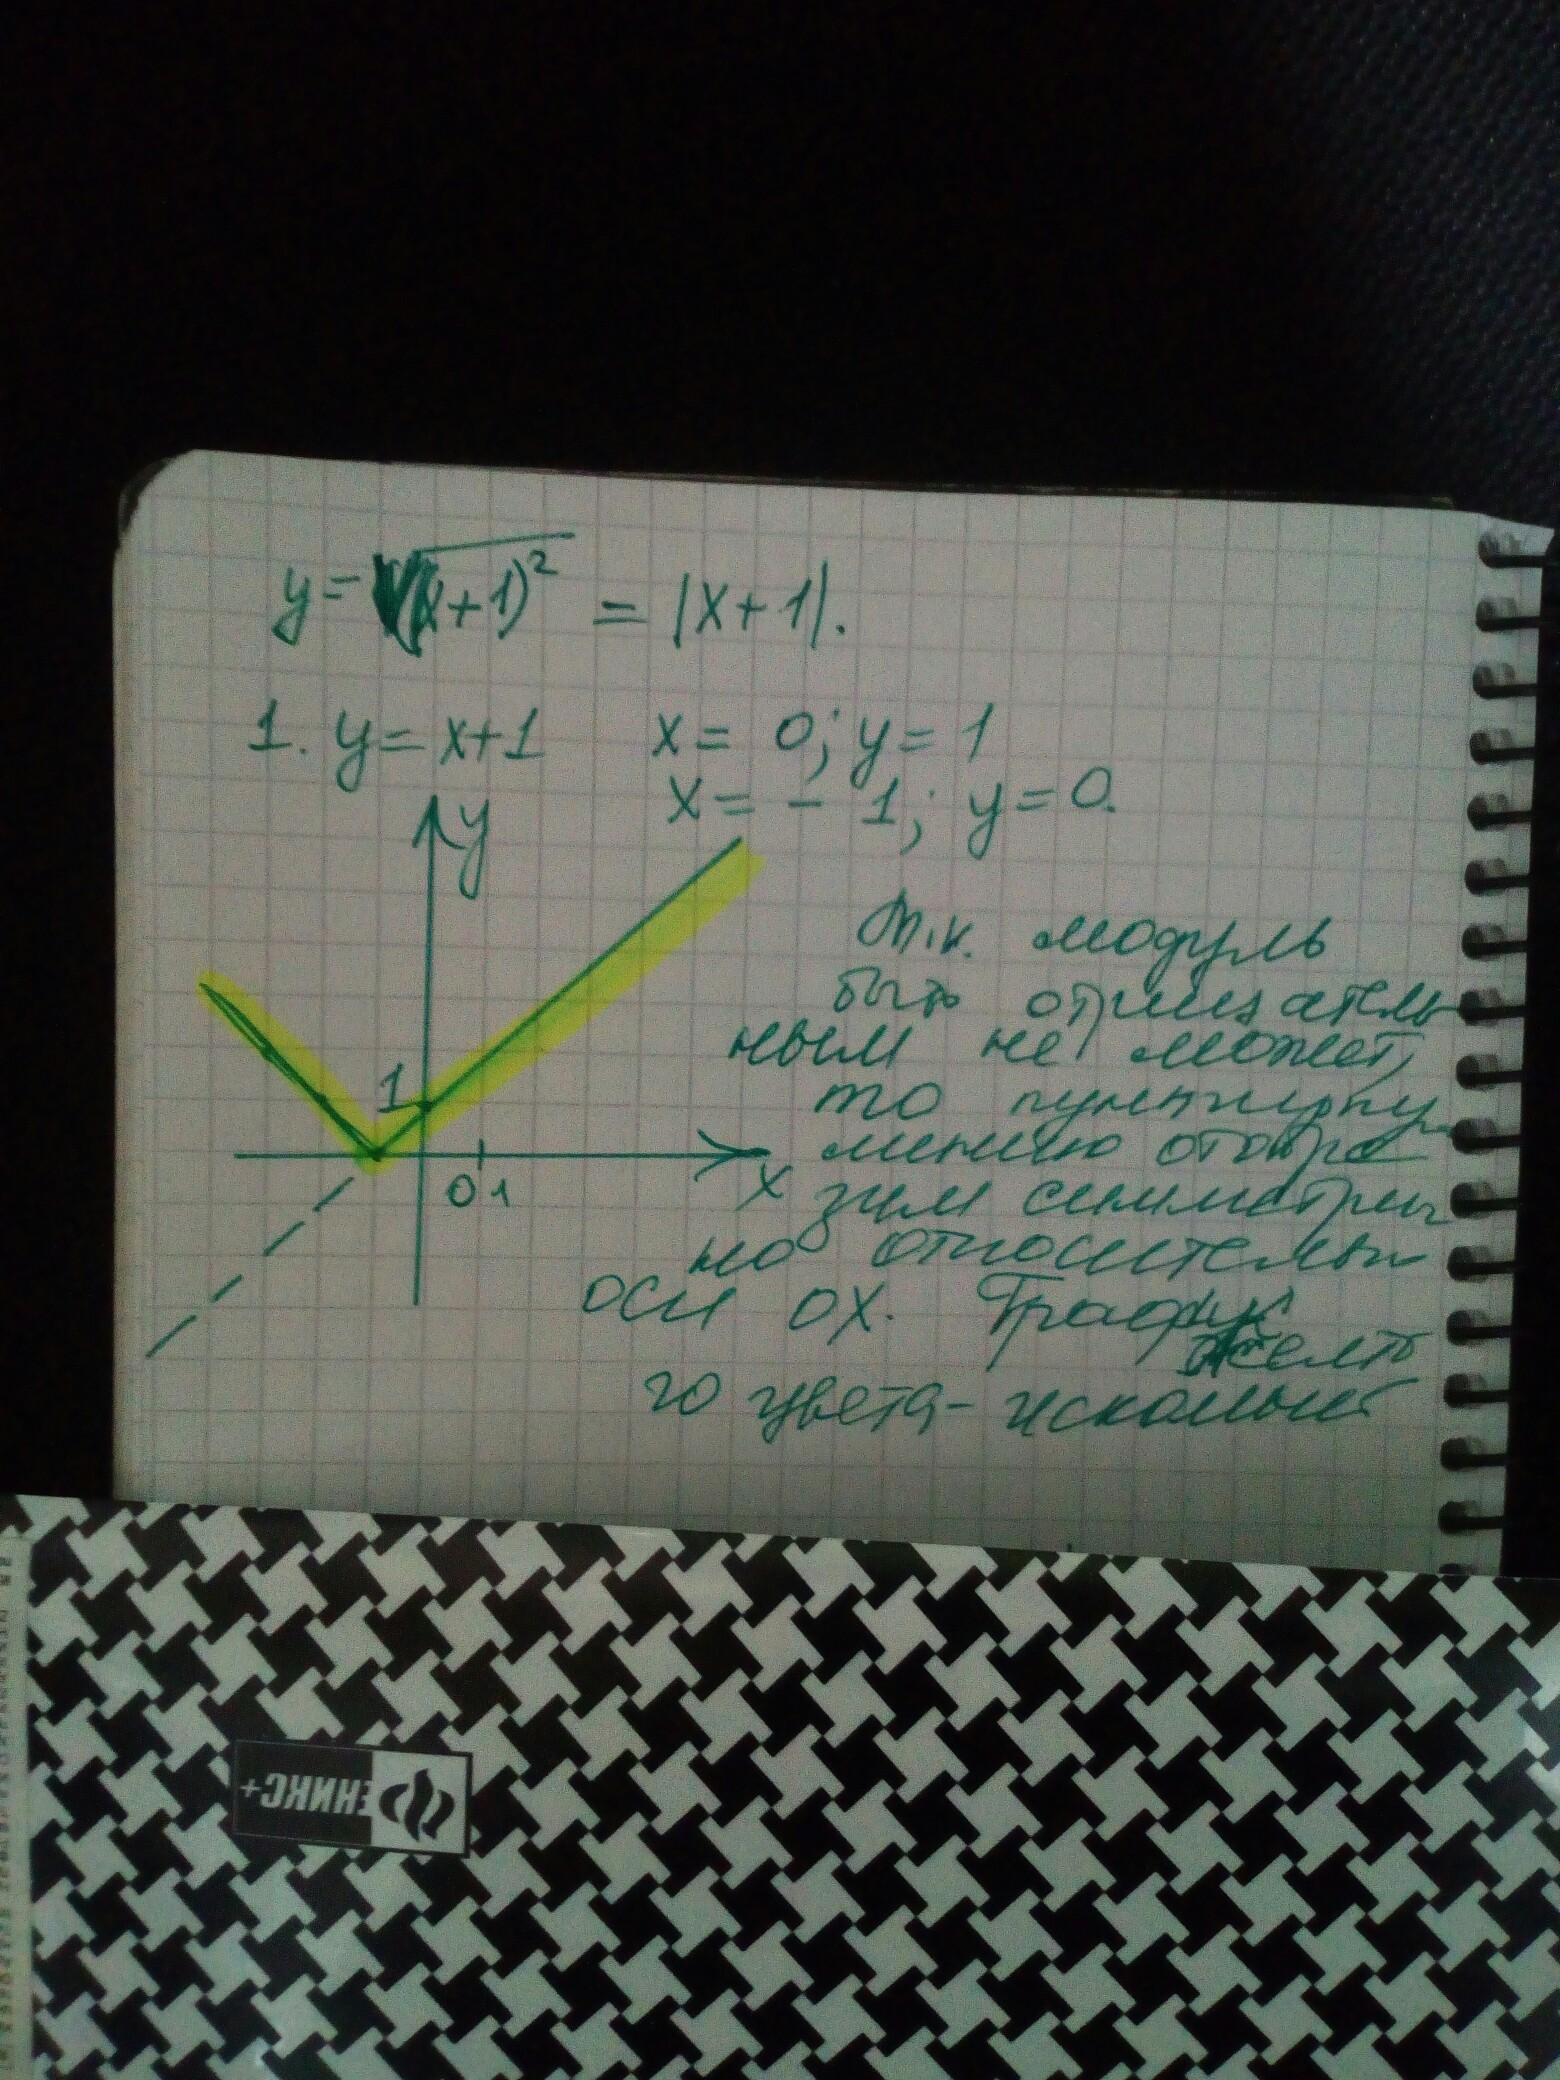 y=√(x+1)² = |x+1|.
1. y=x+1 x= 0; y= 1
x= - 1; y=0.
y
т.к. модуль
быть отрицатель
ным не может,
1
то пунктирну
линию отобра
0 1
x
зим симметрич
но относительн
оси ОХ. График
желто
го цвета - искомый
ЕНИКС+